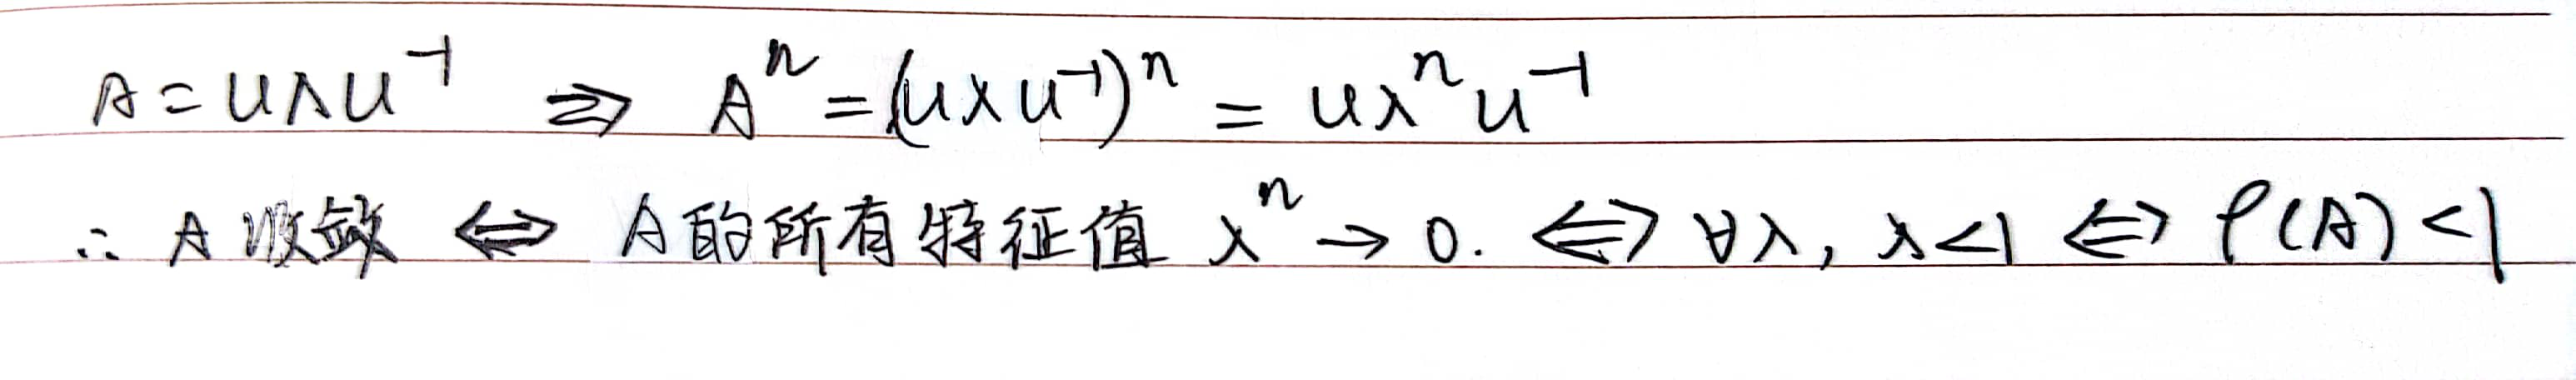 A=UΛU⁻¹ ⇒ Aⁿ=(UλU⁻¹)ⁿ = Uλⁿ U⁻¹
∴ A 收敛 ⇔ A的所有特征值 λⁿ → 0. ⇔ ∀λ, λ<1 ⇔ ρ(A)<1